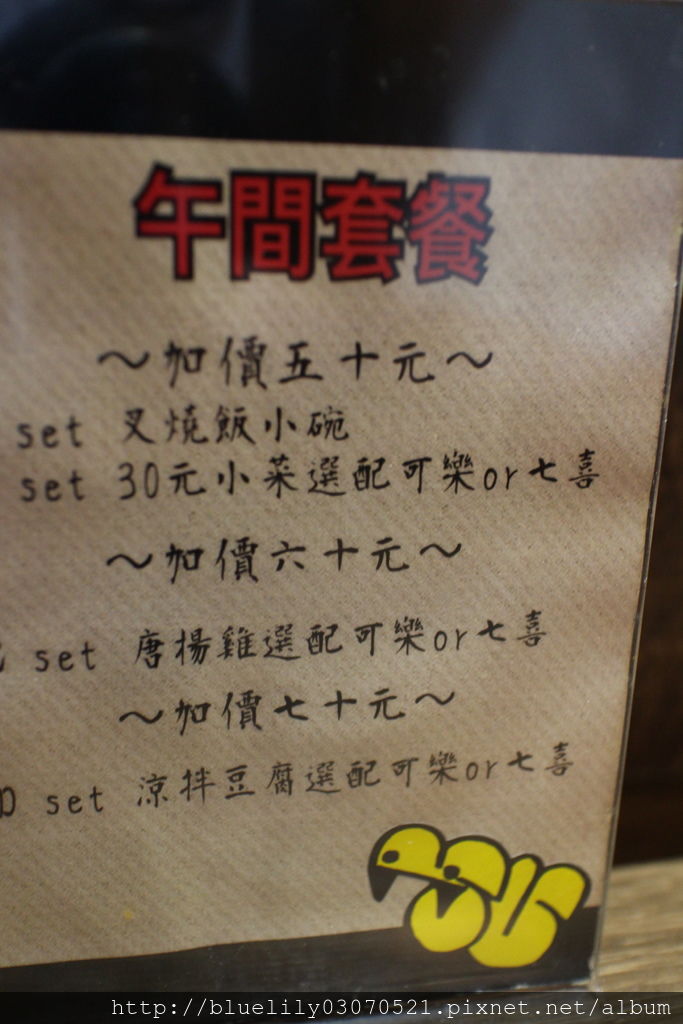 午間套餐
～加價五十元～
set 叉燒飯小碗
set 30元小菜選配可樂or七喜
～加價六十元～
set 唐揚雞選配可樂or七喜
～加價七十元～
D set 涼拌豆腐選配可樂or七喜
http://bluelily03070521.pixnet.net/album